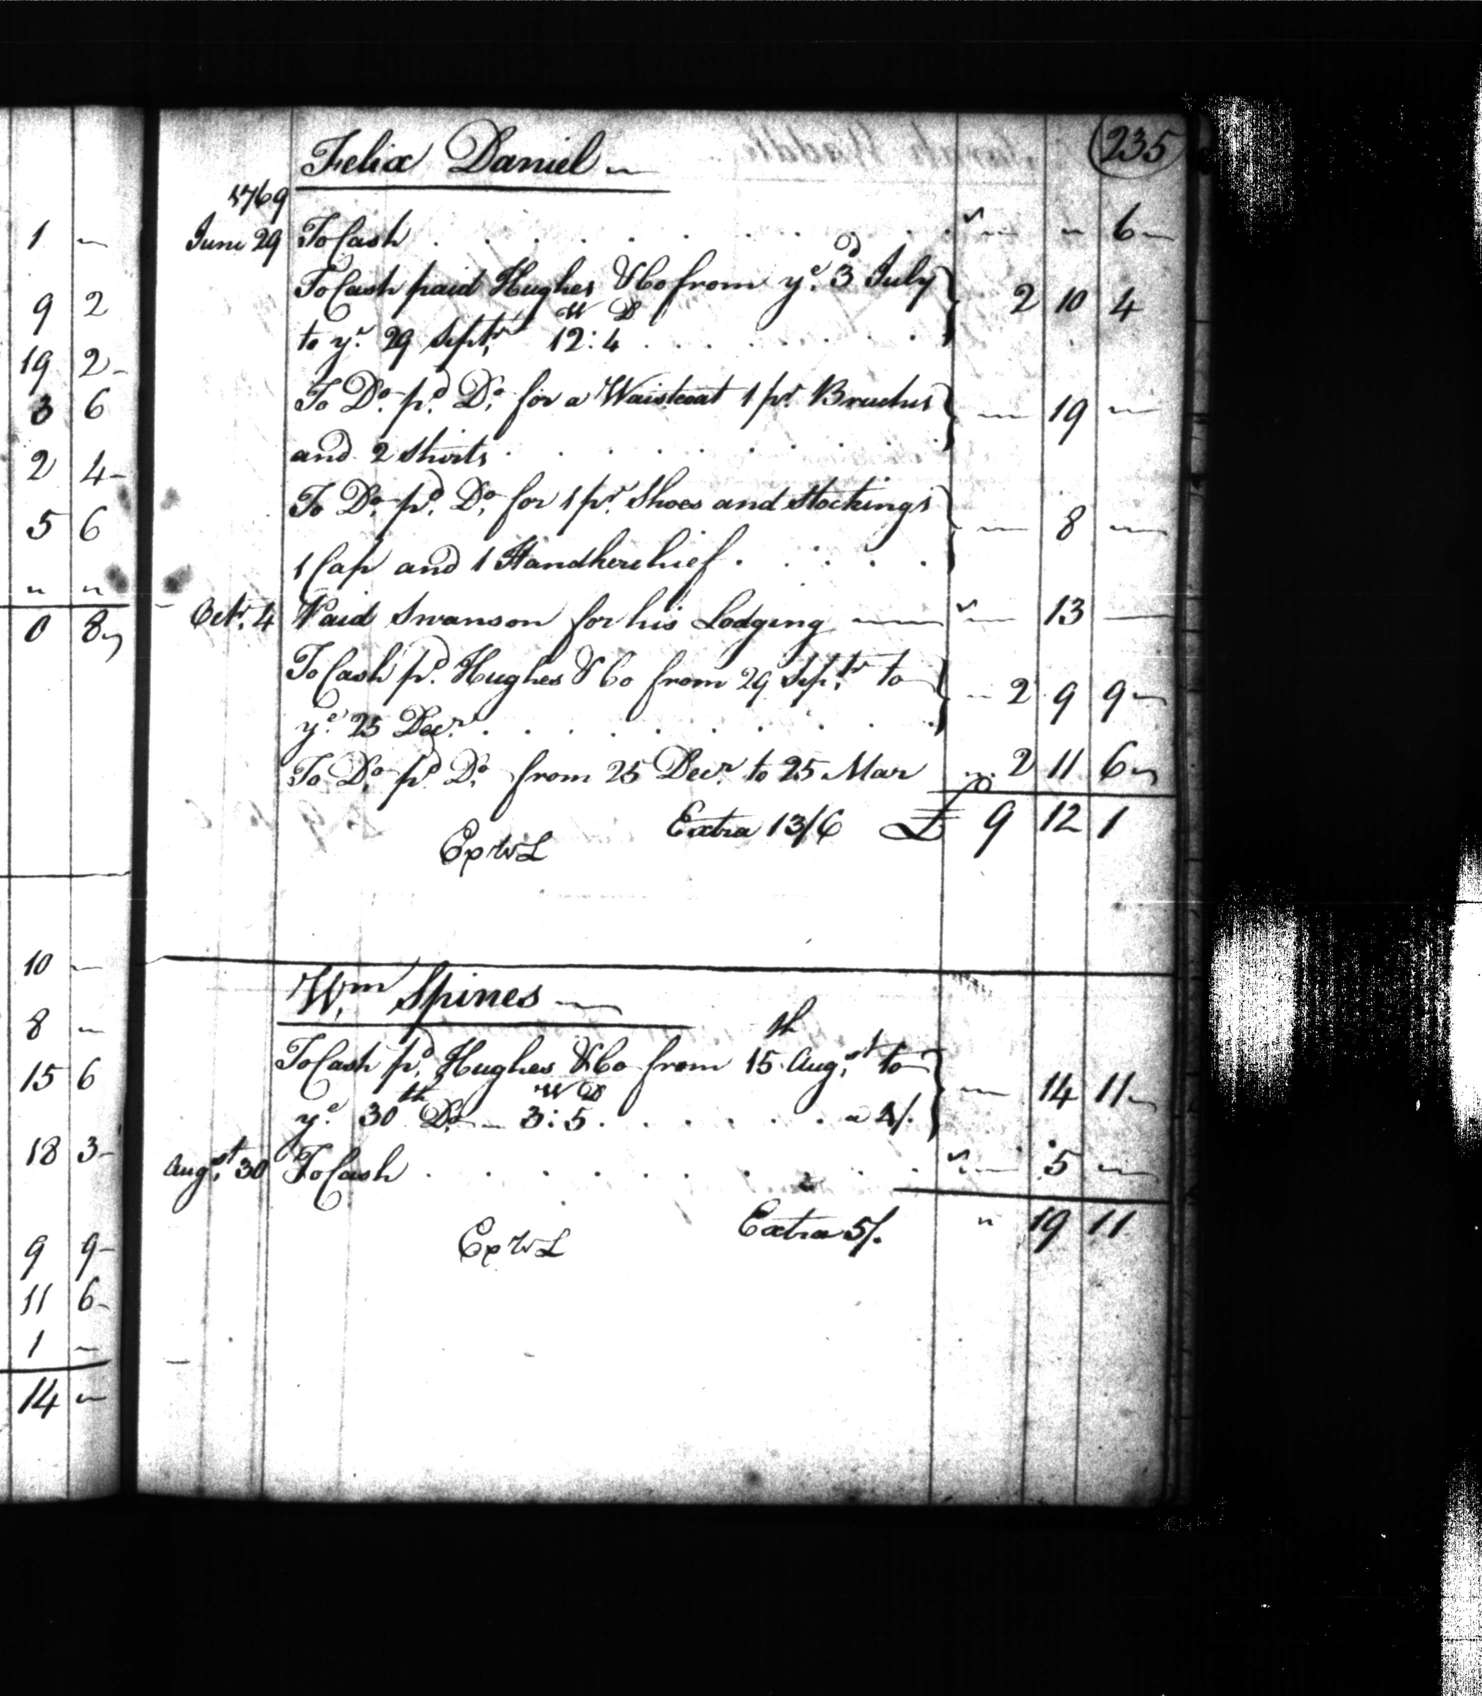 235
Felix Daniel
1769
June 29 To Cash . . . . . . . . . . " " 6
To Cash paid Hughes & Co from ye. 3d July
to ye. 29 Septr. 12 W : 4 D . . . . . . 2 10 4
To Do. pd. Do. for a Waistcoat 1 pr. Breeches
and 2 Shirts . . . . . . . . . — 19 —
To Do. pd. Do. for 1 pr. Shoes and Stockings
1 Cap and 1 Handkerchief . . . . . — 8 —
Octr. 4 Paid Swanson for his Lodging — — 13 —
To Cash pd. Hughes & Co from 29 Septr. to
ye. 25 Decr. . . . . . . . . . 2 9 9
To Do. pd. Do. from 25 Decr. to 25 Mar 2 11 6
Extra 13/6 £ 9 12 1
Ex W L
Wm. Spines
To Cash pd. Hughes & Co from 15th Augst. to
ye. 30th Do. — 3 W : 5 D . . . . . . a 4/. — 14 11
Augst. 30 To Cash . . . . . . . . . — 5 —
Extra 5/. " 19 11
Ex W L
1 —
9 2
19 2
3 6
2 4
5 6
" "
0 8
10 —
8 —
15 6
18 3
9 9
11 6
1 —
14 —